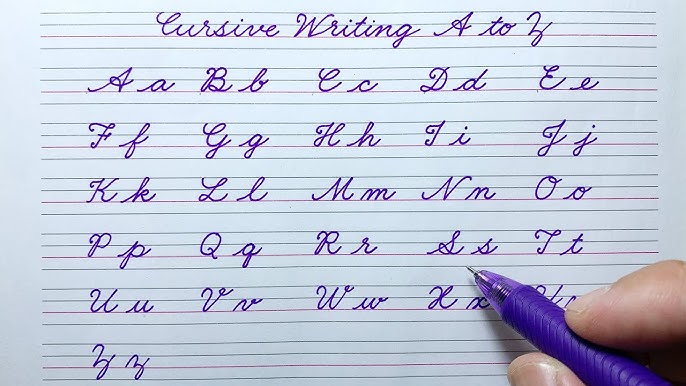 Cursive Writing A to Z
A a B b C c D d E e
F f G g H h I i J j
K k L l M m N n O o
P p Q q R r S s T t
U u V v W w X x Y
Z z